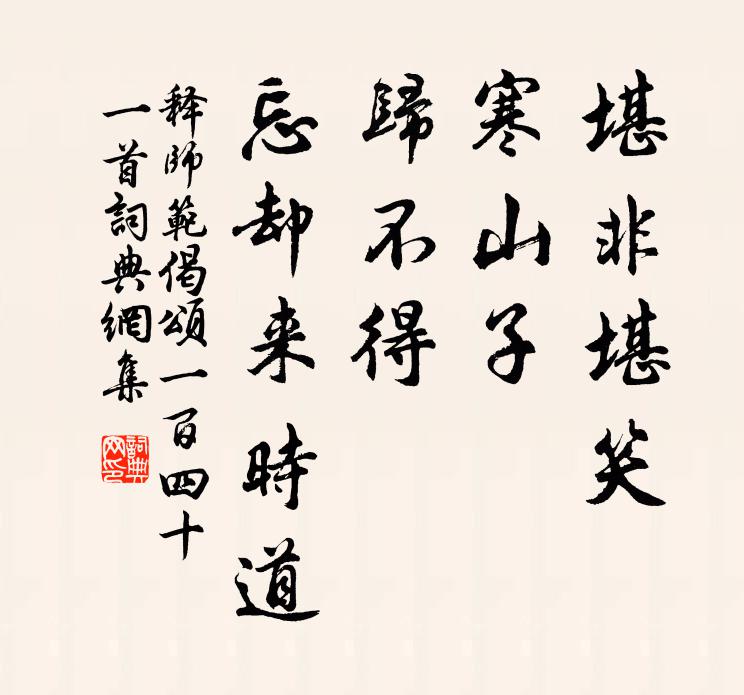 堪非堪笑
寒山子
歸不得
忘却来時道
释師範偈頌一百四十
一首詞典網集
詞典
网印